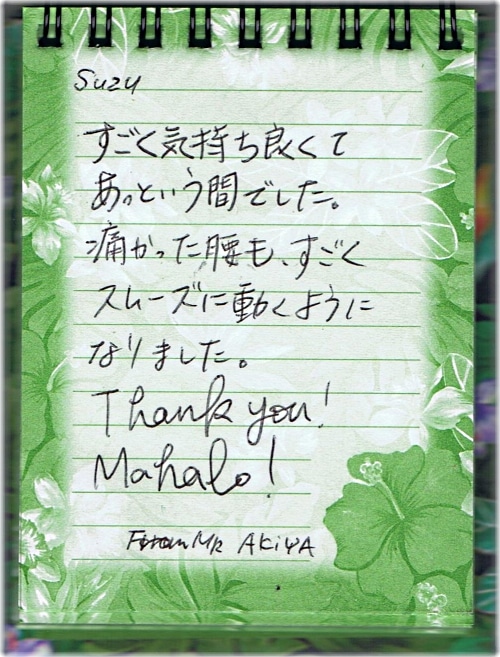 Suzy
すごく気持ち良くて
あっという間でした。
痛かった腰も、すごく
スムーズに動くように
なりました。
Thank you!
Mahalo!
From MR AKIYA